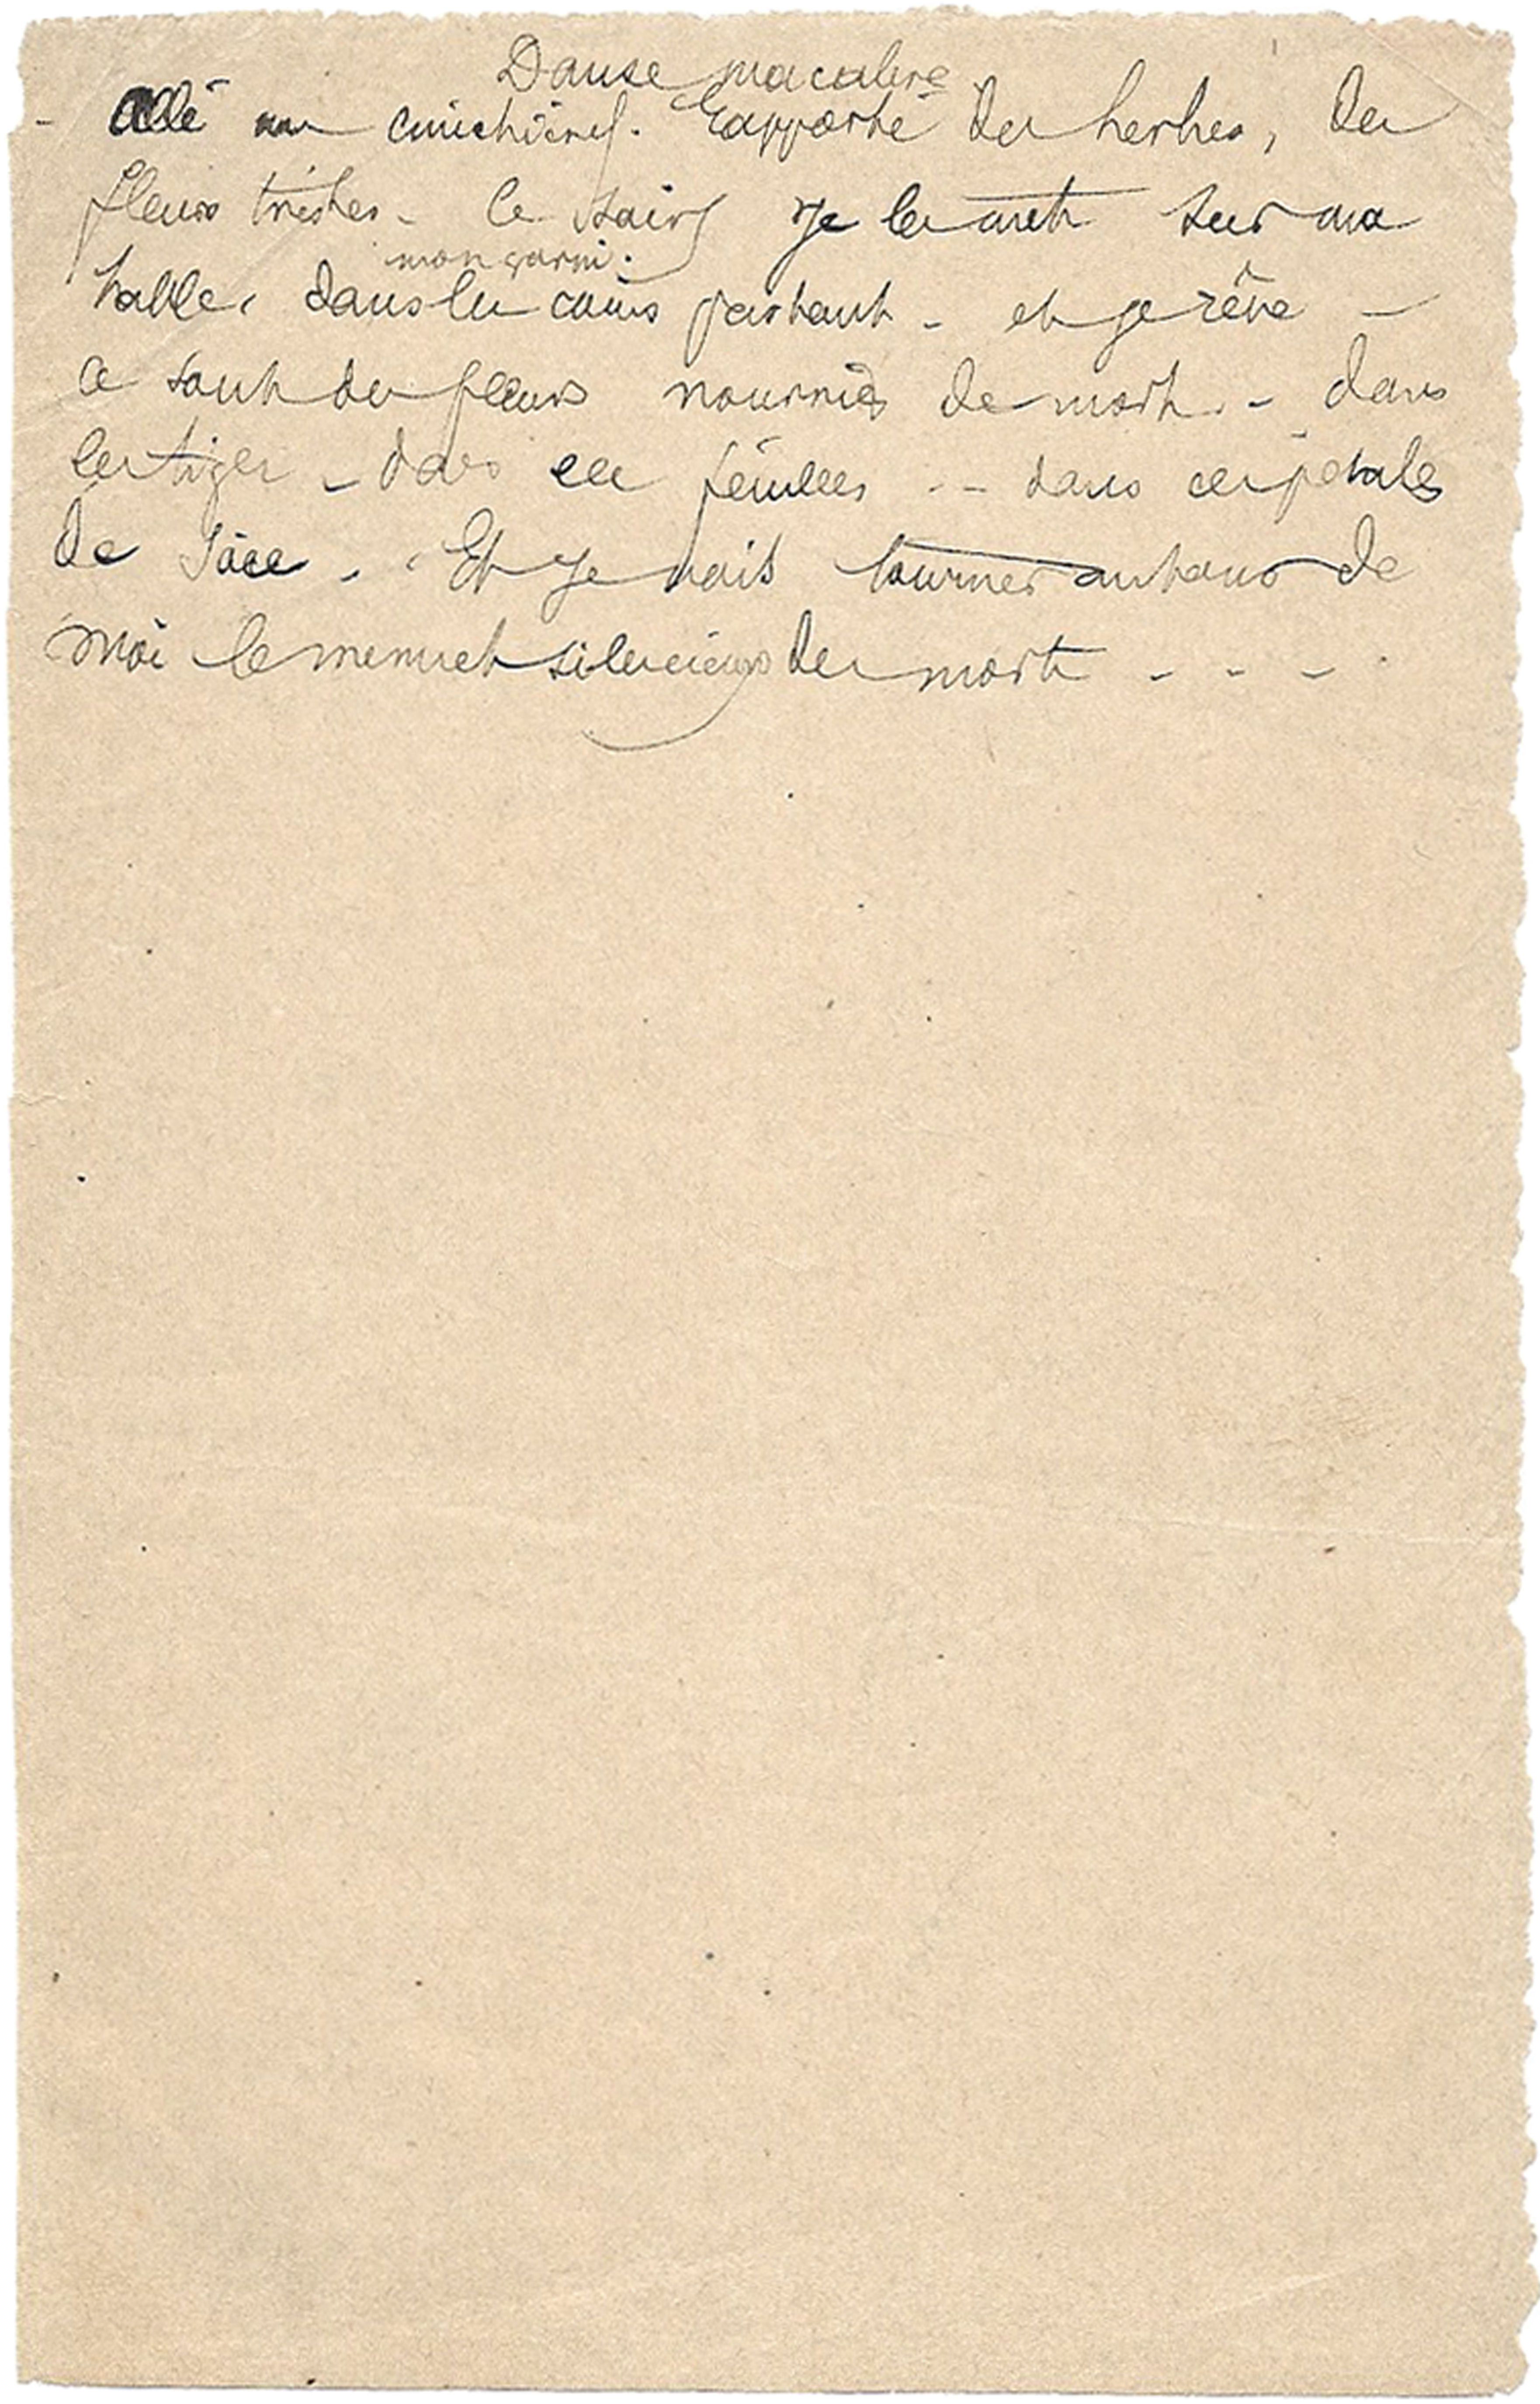 Danse macabre
- Allé au cimetière. Rapporté des herbes, des
fleurs tristes - Ce soir je les mets sur ma
mon garni.
table, dans les coins partout - et je rêve -
Ce sont des fleurs nourries de mort. - dans
les tiges - dans les feuilles - - dans ces pétales
de Et je vois tourner autour de
moi le menuet silencieux des morts - - -